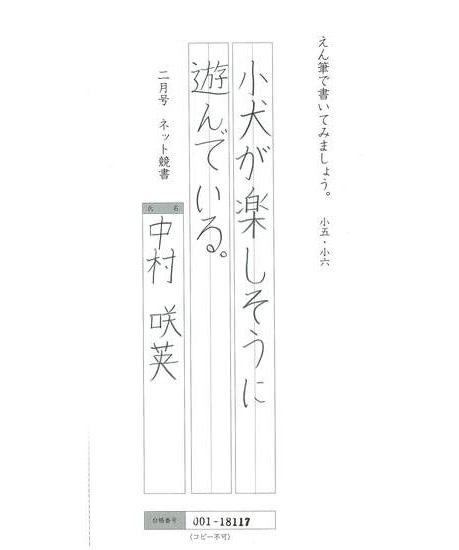 えん筆で書いてみましょう。 小五・小六
小犬が楽しそうに
遊んでいる。
二月号 ネット競書
氏名
中村 咲英
合格番号 001-18117
(コピー不可)